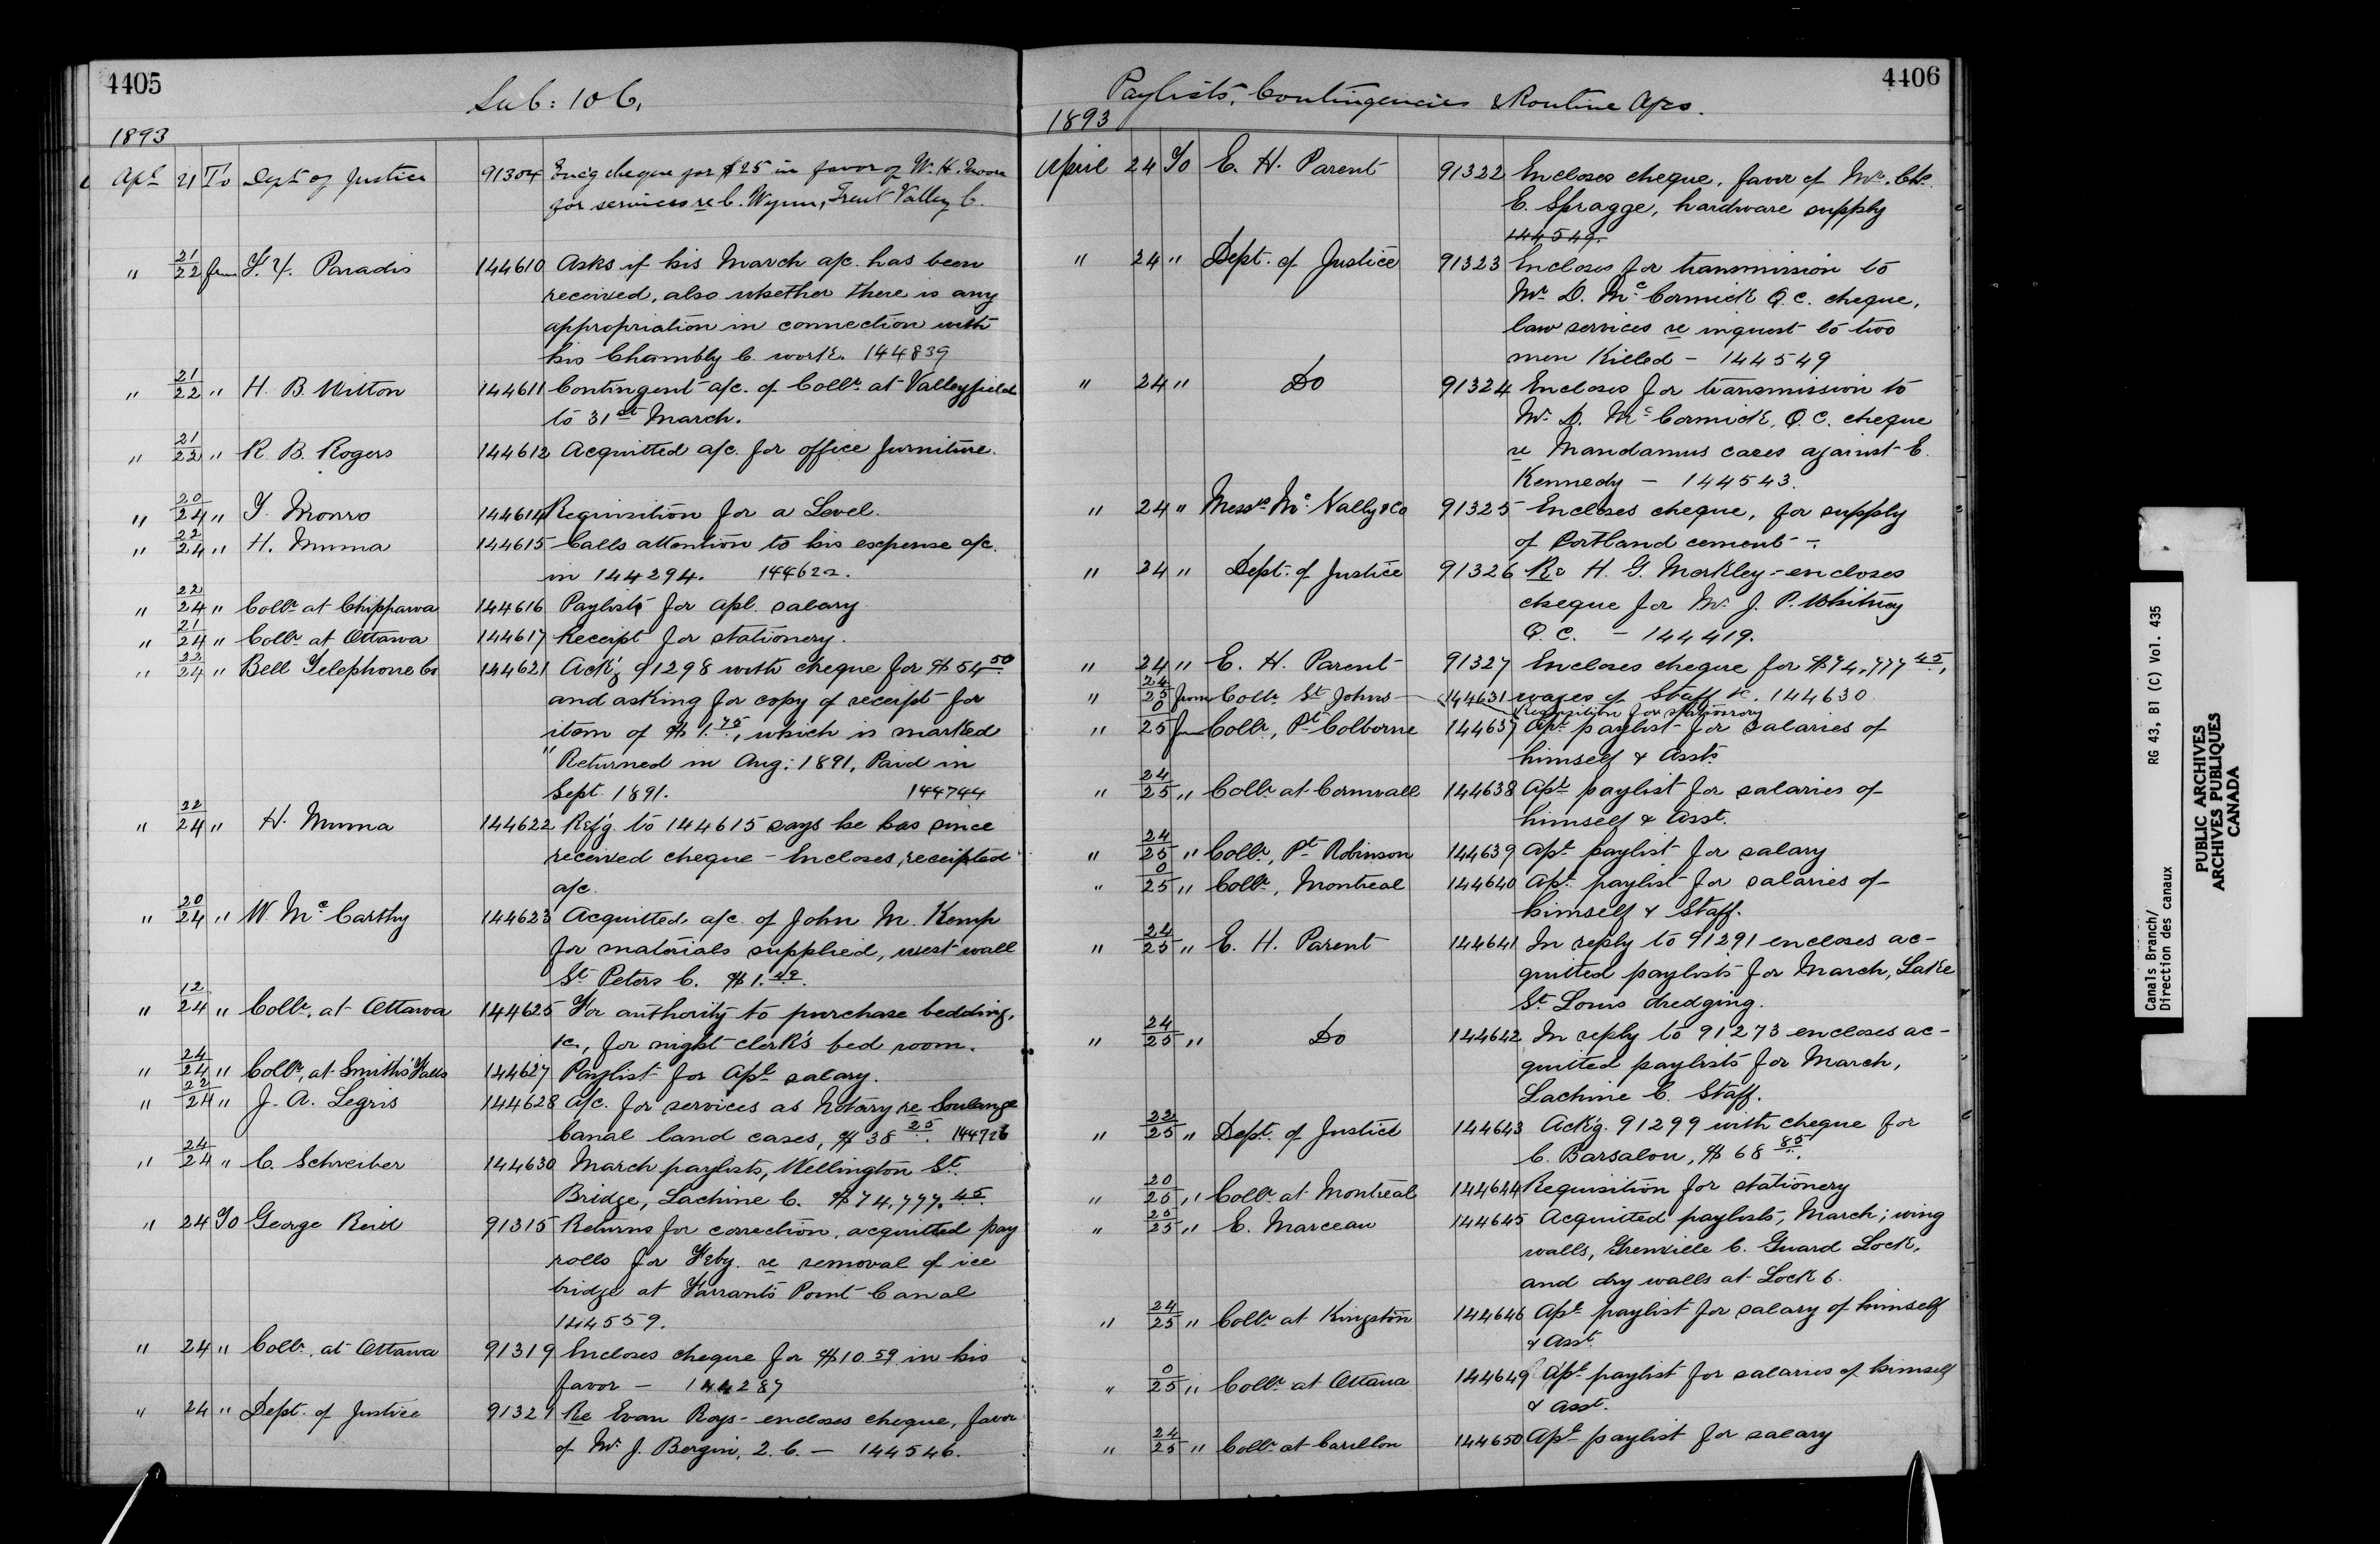 4405
Sub: 106.
1893
Apl 21 To Dept of Justice 91304 Enc'g cheque for $25 in favor of W. H. Moore
for services re C. Wynn, Trent Valley C.
" 21/22 from Paradis 144610 Asks if his March a/c. has been
received, also whether there is any
appropriation in connection with
his Chambly C. work. 144839
" 21/22 " H. B. Witton 144611 Contingent a/c. of Collr. at Valleyfield
to 31st March.
" 21/22 " R. B. Rogers 144612 Acquitted a/c. for office furniture.
" 20/24 " T. Monro 144614 Requisition for a Level.
" 22/24 " H. Muma 144615 Calls attention to his expense a/c.
in 144294. 144622.
" 22/24 " Collr. at Chippawa 144616 Paylists for Apl. salary
" 21/24 " Collr. at Ottawa 144617 Receipt for stationery.
" 22/24 " Bell Telephone Co 144621 Ack'g 91298 with cheque for $54.50
and asking for copy of receipt for
item of $1.75, which is marked
"Returned in Aug: 1891, Paid in
Sept. 1891. 144744
" 22/24 " H. Muma 144622 Ref'g. to 144615 says he has since
received cheque - Encloses receipted
a/c.
" 20/24 " W. McCarthy 144623 Acquitted a/c. of John M. Kemp
for materials supplied, west wall
St. Peters C. $1.49.
" 12/24 " Collr. at Ottawa 144625 For authority to purchase bedding,
&c., for night clerk's bed room.
" 24/24 " Collr. at Smiths Falls 144627 Paylist for Apl. salary.
" 22/24 " J. A. Legris 144628 A/c. for services as Notary re Soulange
Canal land cases, $38.25. 144726
" 24/24 " C. Schreiber 144630 March paylists, Wellington St.
Bridge, Lachine C. $74,777.45.
" 24 To George Reid 91315 Returns for correction, acquitted pay
rolls for Feby. re removal of ice
bridge at Farrants Point Canal
144559.
" 24 " Collr. at Ottawa 91319 Encloses cheque for $10.59 in his
favor - 144287
" 24 " Dept. of Justice 91321 Re Evan Roys - encloses cheque, favor
of Mr. J. Bergin, Q.C. - 144546.
4406
Paylists, Contingencies & Routine A/cs.
1893
April 24 To E. H. Parent 91322 Encloses cheque, favor of Mr. Chs.
E. Spragge, hardware supply
144549.
" 24 " Dept. of Justice 91323 Encloses for transmission to
Mr. D. McCormick Q.C. cheque,
law services re inquest to two
men killed - 144549
" 24 " Do 91324 Encloses for transmission to
Mr. D. McCormick, Q.C. cheque
re Mandamus cases against E.
Kennedy - 144543.
" 24 " Messrs McNally & Co 91325 Encloses cheque, for supply
of Portland cement -.
" 24 " Dept. of Justice 91326 Re H. G. Merkley - encloses
cheque for Mr. J. P. Whitney
Q.C. - 144419.
" 24 " E. H. Parent 91327 Encloses cheque for $74,777.45,
wages of Staff &c. 144630
" 24/25 from Collr. St Johns 144631 Requisition for stationery
" 0/25 from Collr., Pt Colborne 144637 Apl. paylist for salaries of
himself & Assts
" 24/25 " Collr. at Cornwall 144638 Apl. paylist for salaries of
himself & Asst.
" 24/25 " Collr., Pt Robinson 144639 Apl. paylist for salary
" 0/25 " Collr., Montreal 144640 Apl. paylist for salaries of
himself & Staff.
" 24/25 " E. H. Parent 144641 In reply to 91291 encloses ac-
quitted paylists for March, Lake
St. Louis dredging.
" 24/25 " Do 144642 In reply to 91273 encloses ac-
quitted paylists for March,
Lachine C. Staff.
" 22/25 " Dept. of Justice 144643 Ack'g. 91299 with cheque for
C. Barsalou, $68.85.
" 20/25 " Collr. at Montreal 144644 Requisition for stationery
" 25/25 " E. Marceau 144645 Acquitted paylists, March; wing
walls, Grenville C. Guard Lock,
and dry walls at Lock 6.
" 24/25 " Collr. at Kingston 144646 Apl. paylist for salary of himself
& Asst.
" 0/25 " Collr. at Ottawa 144649 Apl. paylist for salaries of himself
& Asst.
" 24/25 " Collr. at Carillon 144650 Apl. paylist for salary
Canals Branch/
Direction des canaux
RG 43, B1 (C) Vol. 435
PUBLIC ARCHIVES
ARCHIVES PUBLIQUES
CANADA